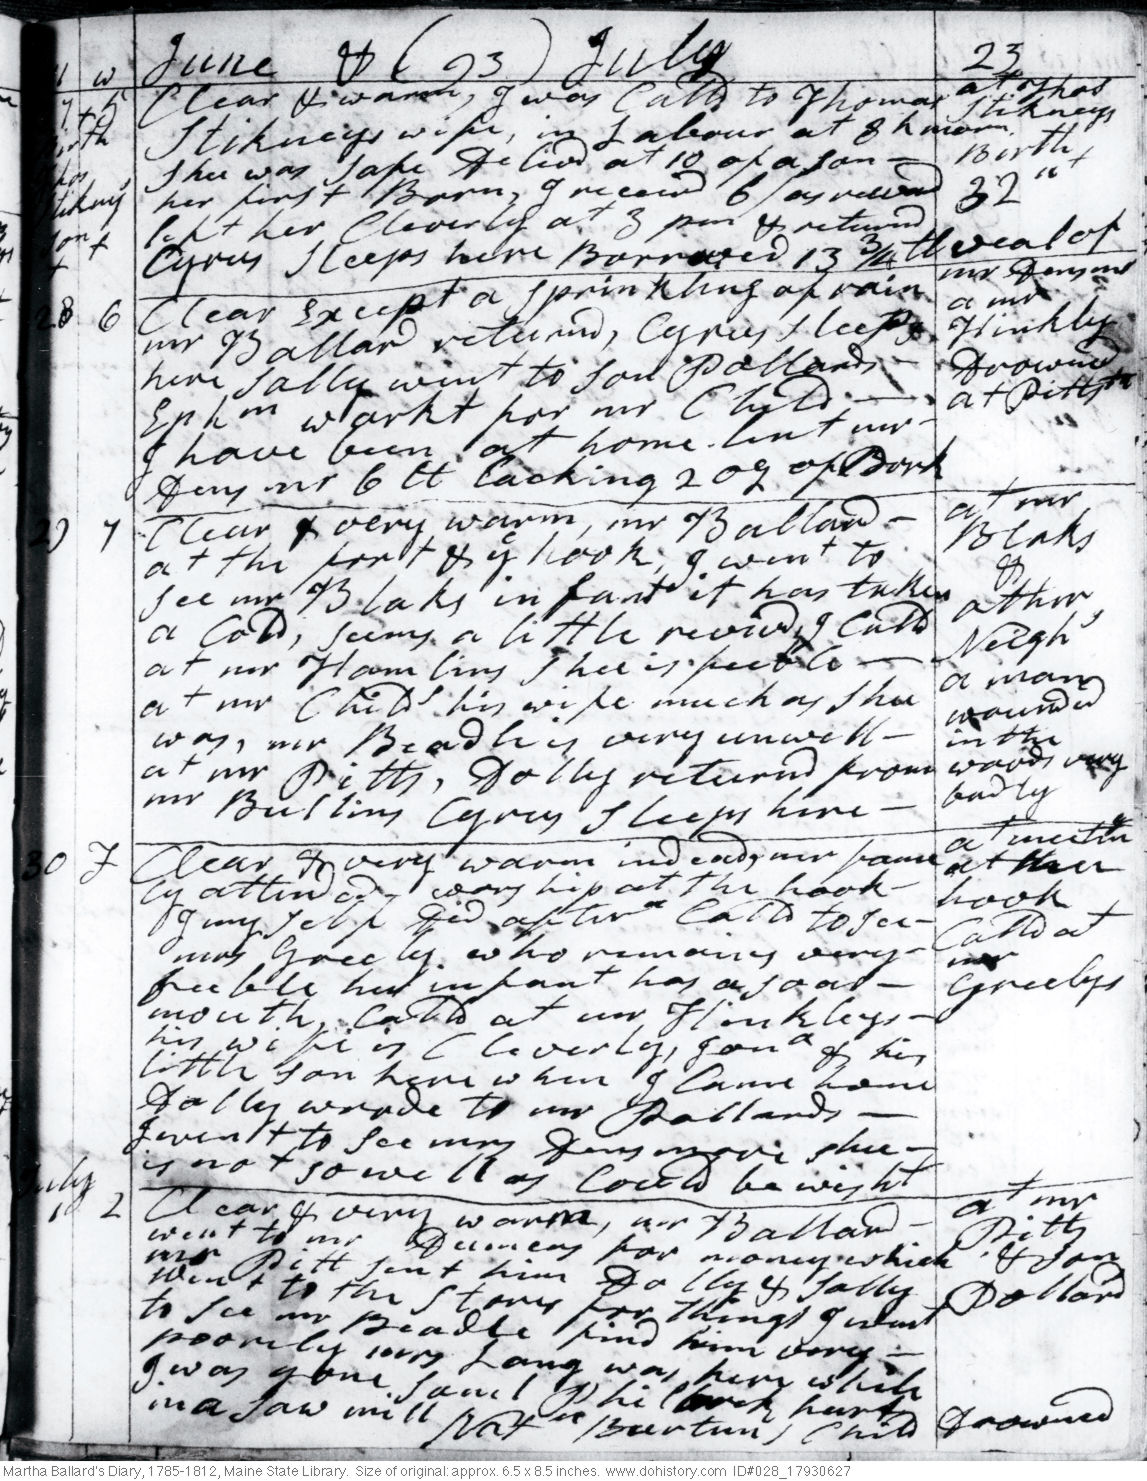 June & (93) July 23
w
Clear & warm, I was Calld to Thomas
Stikneys wife, in Labour at 8 h morn.
Shee was safe Delivd at 10 of a son –
her first Born, I receivd 6/ as reward
left her Cleverly at 3 pm & returnd
Cyrus Sleeps here Borrowed 13 3/4 lb veal of
at Thos
Stikneys
Birth
32nd +
mr Densmr
son +
28 6 Clear Except a sprinkling of rain
mr Ballard returnd, Cyrus sleeps
here Sally went to son Pollards –
Ephm workt for mr Child –
I have been at home. lent mr
Densmr 6 lb lacking 2 oz of Pork
a mr
Hinkly
Drownd
at Pittstn
29 7 Clear & very warm, mr Ballard –
at the fort & ye hook, I went to
see mr Blaks infant it has taken
a Cold, seems a little revivd, I Calld
at mr Hamlins Shee is feeble –
at mr Childs his wife much as Shee
was, mr Beadle is very unwell –
at mr Pitts, Dolly returnd from
mr Bullins Cyrus Sleeps here –
at mr
Blaks
&
other
Neighs
a man
wounded
in the
woods very
badly
30 F Clear & very warm indead, mr fami
ly attinded worship at the hook –
I my self Did aftern Calld to see –
mrs Greely who remains very –
feeble her infant has a soar –
mouth, Calld at mr Hinkleys –
his wife is Cleverly, Jona & his
little son here when I Came home
Dolly wrode to mr Pollards –
I went to see mrs Densmore shee –
is not so well as Could be wisht
at meetin
at the
hook
Calld at
mr
Greelys
July
1 2 Clear & very warm, mr Ballard –
went to mr Dumens for money which
mr Pitt sent him Dolly & Sally
went to the Stores for things I went
to see mr Beadle find him very –
poorly mrs Lang was here while
I was gone Saml Philbrok hurt
in a saw mill
Natn Burtuns Child Drownd
at mr
Pitts
& son
Pollard
Martha Ballard's Diary, 1785-1812, Maine State Library. Size of original: approx. 6.5 x 8.5 inches. www.dohistory.com ID#028_17930627